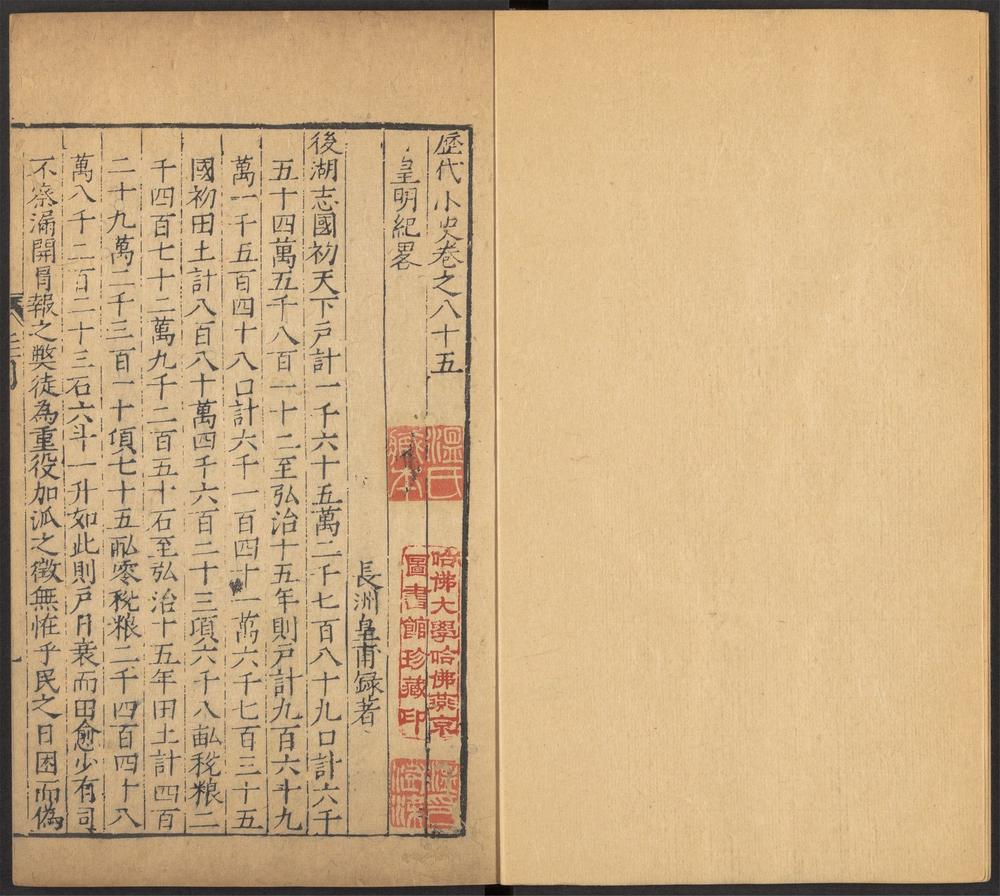 歷代小史卷之八十五
皇明紀畧
長洲皇甫錄著
後湖志國初天下戶計一千六十五萬二千七百八十九口計六千
五十四萬五千八百一十二至弘治十五年則戶計九百六十九
萬一千五百四十八口計六千一百四十一萬六千七百三十五
國初田土計八百八十萬四千六百二十三項六千八畝稅粮二
千四百七十二萬九千二百五十石至弘治十五年田土計四百
二十九萬二千三百一十頃七十五畝零稅粮二千四百四十八
萬八千二百二十三石六斗一升如此則戶日衰而田愈少有司
不察漏開冒報之獘徒為重役加派之徵無恠乎民之日困而偽
溫氏
藏本
哈佛大學哈佛燕京
圖書館珍藏印